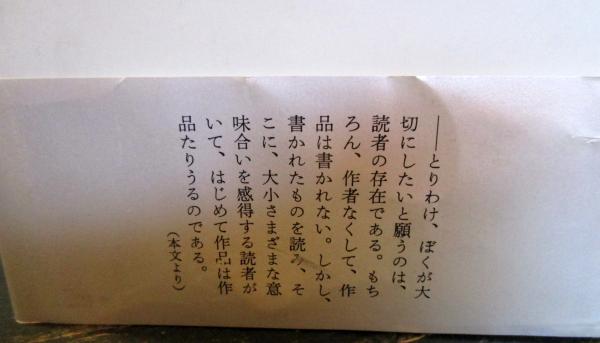 ──とりわけ、ぼくが大
切にしたいと願うのは、
読者の存在である。もち
ろん、作者なくして、作
品は書かれない。しかし、
書かれたものを読み、そ
こに、大小さまざまな意
味合いを感得する読者が
いて、はじめて作品は作
品たりうるのである。
（本文より）